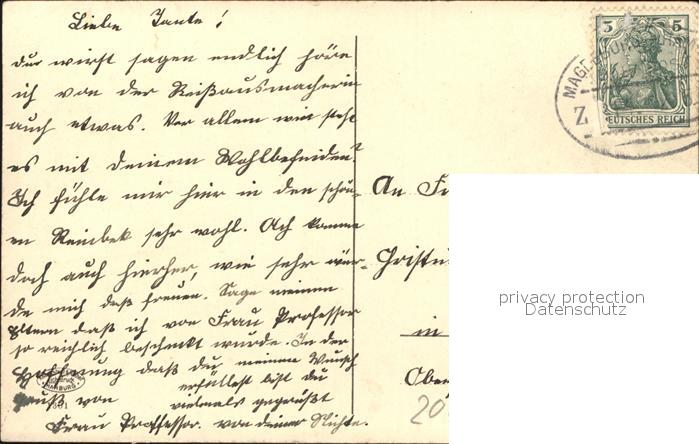 Liebe Tante!
du wirst sagen endlich höre
ich von der Reißausmacherin
auch etwas. Vor allem wie steht
es mit deinem Wohlbefinden?
Ich fühle mir hier in den schön-
en Reinbek sehr wohl. Ach komme
doch auch hierher, wie sehr wür-
de mich daß freuen. Sage meinem
Eltern daß ich von Frau Professor
so reichlich beschenkt wurde. In der
Hoffnung daß du meinem Wunsch
erfüllest bist du
Gruß von vielmals gegrüßt
Frau Professor. von deiner Nichte.
An
in
20
5 5
DEUTSCHES REICH
Z.
HAMBURG
privacy protection
Datenschutz